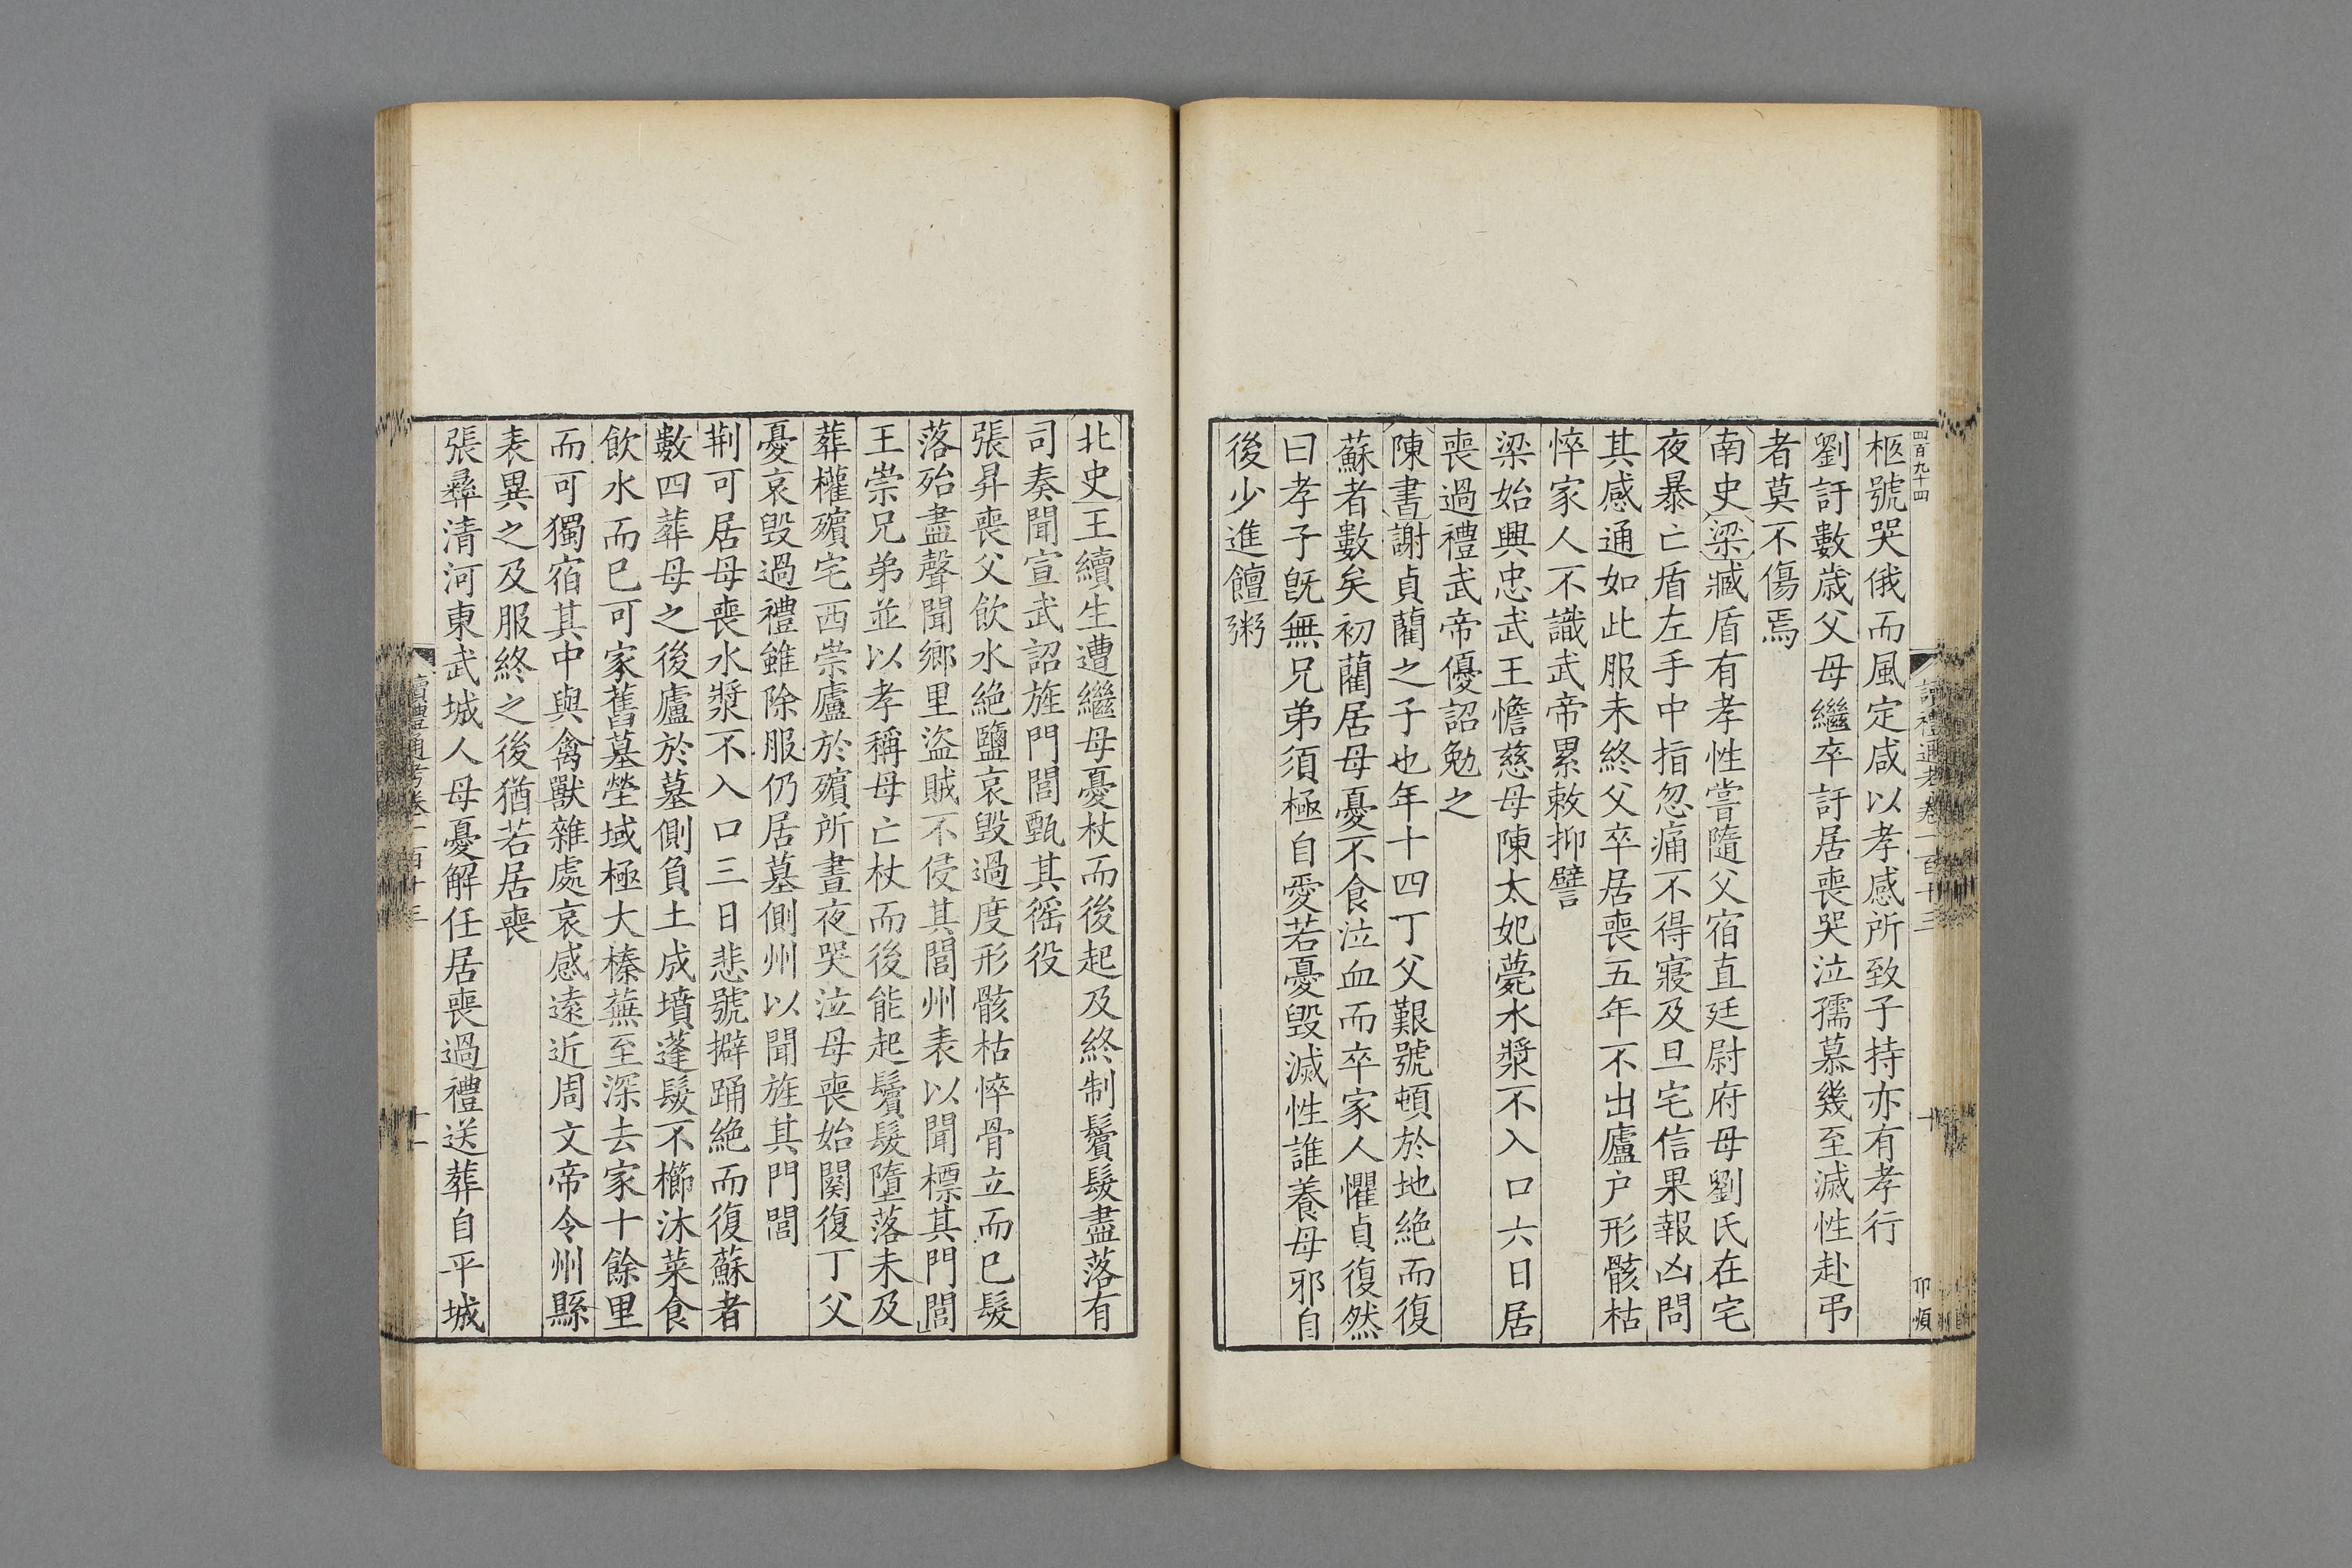 四百九十四
讀禮通考卷一百十三
十
柩號哭俄而風定咸以孝感所致子持亦有孝行
劉訏數歲父母繼卒訏居喪哭泣孺慕幾至滅性赴弔
者莫不傷焉
南史梁臧盾有孝性嘗隨父宿直廷尉府母劉氏在宅
夜暴亡盾左手中指忽痛不得寢及旦宅信果報凶問
其感通如此服未終父卒居喪五年不出廬户形骸枯
悴家人不識武帝累敕抑譬
梁始興忠武王憺慈母陳太妃薨水漿不入口六日居
喪過禮武帝優詔勉之
陳書謝貞藺之子也年十四丁父艱號頓於地絶而復
蘇者數矣初藺居母憂不食泣血而卒家人懼貞復然
曰孝子旣無兄弟須極自愛若憂毁滅性誰養母邪自
後少進饘粥
北史王續生遭繼母憂杖而後起及終制鬢髮盡落有
司奏聞宣武詔旌門閭甄其徭役
張昇喪父飲水絶鹽哀毁過度形骸枯悴骨立而已髮
落殆盡聲聞鄉里盜賊不侵其閭州表以聞標其門閭
王崇兄弟並以孝稱母亡杖而後能起鬢髮墮落未及
葬權殯宅西崇廬於殯所晝夜哭泣母喪始闋復丁父
憂哀毁過禮雖除服仍居墓側州以聞旌其門閭
荆可居母喪水漿不入口三日悲號擗踊絶而復蘇者
數四葬母之後廬於墓側負土成墳蓬髮不櫛沐菜食
飲水而已可家舊墓塋域極大榛蕪至深去家十餘里
而可獨宿其中與禽獸雜處哀感遠近周文帝令州縣
表異之及服終之後猶若居喪
張彝清河東武城人母憂解任居喪過禮送葬自平城
讀禮通考卷一百十三
十一